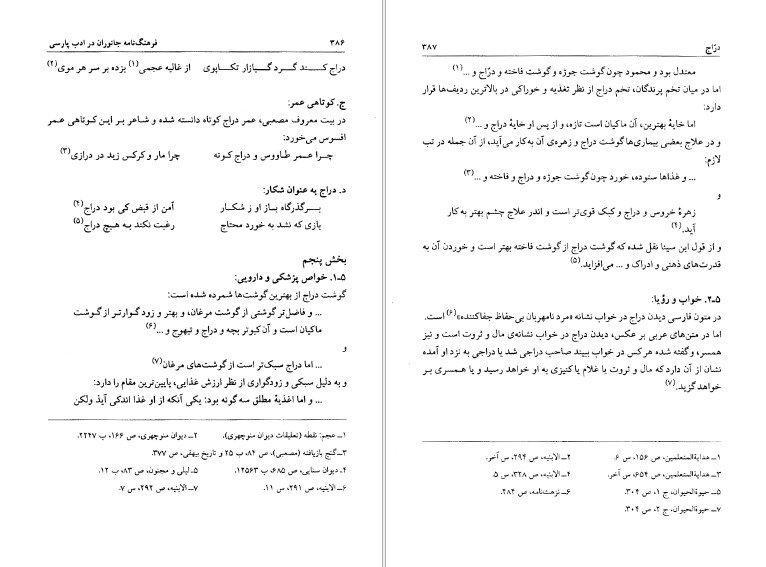 ۳۸۶
فرهنگ‌نامه جانوران در ادب پارسی
دراج کـــند گـــرد گـــبازار تکـاپوی از غالیه عجمی(۱) بزده بر سر هر موی(۲)
ج. کوتاهی عمر:
در بیت معروف مصعبی، عمر دراج کوتاه دانسته شده و شاعر بر ایـن کوتاهی عمـر
افسوس می‌خورد:
چـرا عـمر طـاووس و دراج کـوته چرا مار و کرکس زید در درازی(۳)
د. دراج به عنوان شکار:
بـــرگذرگاه بـاز او ز شکـار آمن از قبض کی بود دراج(۴)
بازی که نشد به خورد محتاج رغبت نکند بـه هـیچ دراج(۵)
بخش پنجم
۵ـ۱. خواص پزشکی و دارویی:
گوشت دراج از بهترین گوشت‌ها شمرده شده است:
... و فاضل‌تر گوشتی از گوشت مرغان، و بهتر و زود گوارتـر از گـوشت
ماکیان است و آن کبوتر بچه و دراج و تیهوج و ...(۶)
و
... اما دراج سبک‌تر است از گوشت‌های مرغان(۷)
و به دلیل سبکی و زودگواری از نظر ارزش غذایی، پایین‌ترین مقام را دارد:
... و اما اغذیهٔ مطلق سه گونه بود: یکی آنکه از او غذا اندکی آید ولکن
۱ـ عجم: نقطه (تعلیقات دیوان منوچهری). ۲ـ دیوان منوچهری، ص ۱۶۶، ب ۲۲۴۷.
۳ـ گنج بازیافته (مصعبی)، ص ۸۴، ب ۲۵ و تاریخ بیهقی، ص ۳۷۷.
۴ـ دیوان سنایی، ص ۶۸۵، ب ۱۲۵۶۳. ۵ـ لیلی و مجنون، ص ۸۳، ب ۱۲.
۶ـ الابنیه، ص ۲۹۱، س ۱۱. ۷ـ الابنیه، ص ۲۹۲، س ۷.
درّاج
۳۸۷
معتدل بود و محمود چون گوشت جوژه و گوشت فاخته و درّاج و ...(۱)
اما در میان تخم پرندگان، تخم دراج از نظر تغذیه و خوراکی در بالاترین ردیف‌ها قرار
دارد:
اما خایهٔ بهترین، آن ماکیان است تازه، و از پس او خایهٔ دراج و ...(۲)
و در علاج بعضی بیماری‌ها گوشت دراج و زهره‌ی آن به‌کار می‌آید، از آن جمله در تب
لازم:
... و غذاها ستوده، خورد چون گوشت جوژه و دراج و فاخته و ...(۳)
و
زهرهٔ خروس و دراج و کبک قوی‌تر است و اندر علاج چشم بهتر به‌کار
آید.(۴)
و از قول ابن سینا نقل شده که گوشت دراج از گوشت فاخته بهتر است و خوردن آن به
قدرت‌های ذهنی و ادراک و ... می‌افزاید.(۵)
۵ـ۲. خواب و رؤیا:
در متون فارسی دیدن دراج در خواب نشانه «مرد نامهربان بی‌حفاظ جفاکننده»(۶) است.
اما در متن‌های عربی بر عکس، دیدن دراج در خواب نشانه‌ی مال و ثروت است و نیز
همسر، وگفته شده هر کس در خواب بیند صاحب دراجی شد یا دراجی به نزد او آمده
نشان از آن دارد که مال و ثروت یا غلام یا کنیزی به او خواهد رسید و یا همسری بـر
خواهد گزید.(۷)
۱ـ هدایةالمتعلمین، ص ۱۵۶، س ۶. ۲ـ الابنیه، ص ۲۹۴، س آخر.
۳ـ هدایةالمتعلمین، ص ۶۵۴، س آخر. ۴ـ الابنیه، ص ۳۲۸، س ۵.
۵ـ حیوةالحیوان، ج ۱، ص ۳۰۴. ۶ـ نزهت‌نامه، ص ۴۸۴.
۷ـ حیوةالحیوان، ج ۲، ص ۳۰۴.